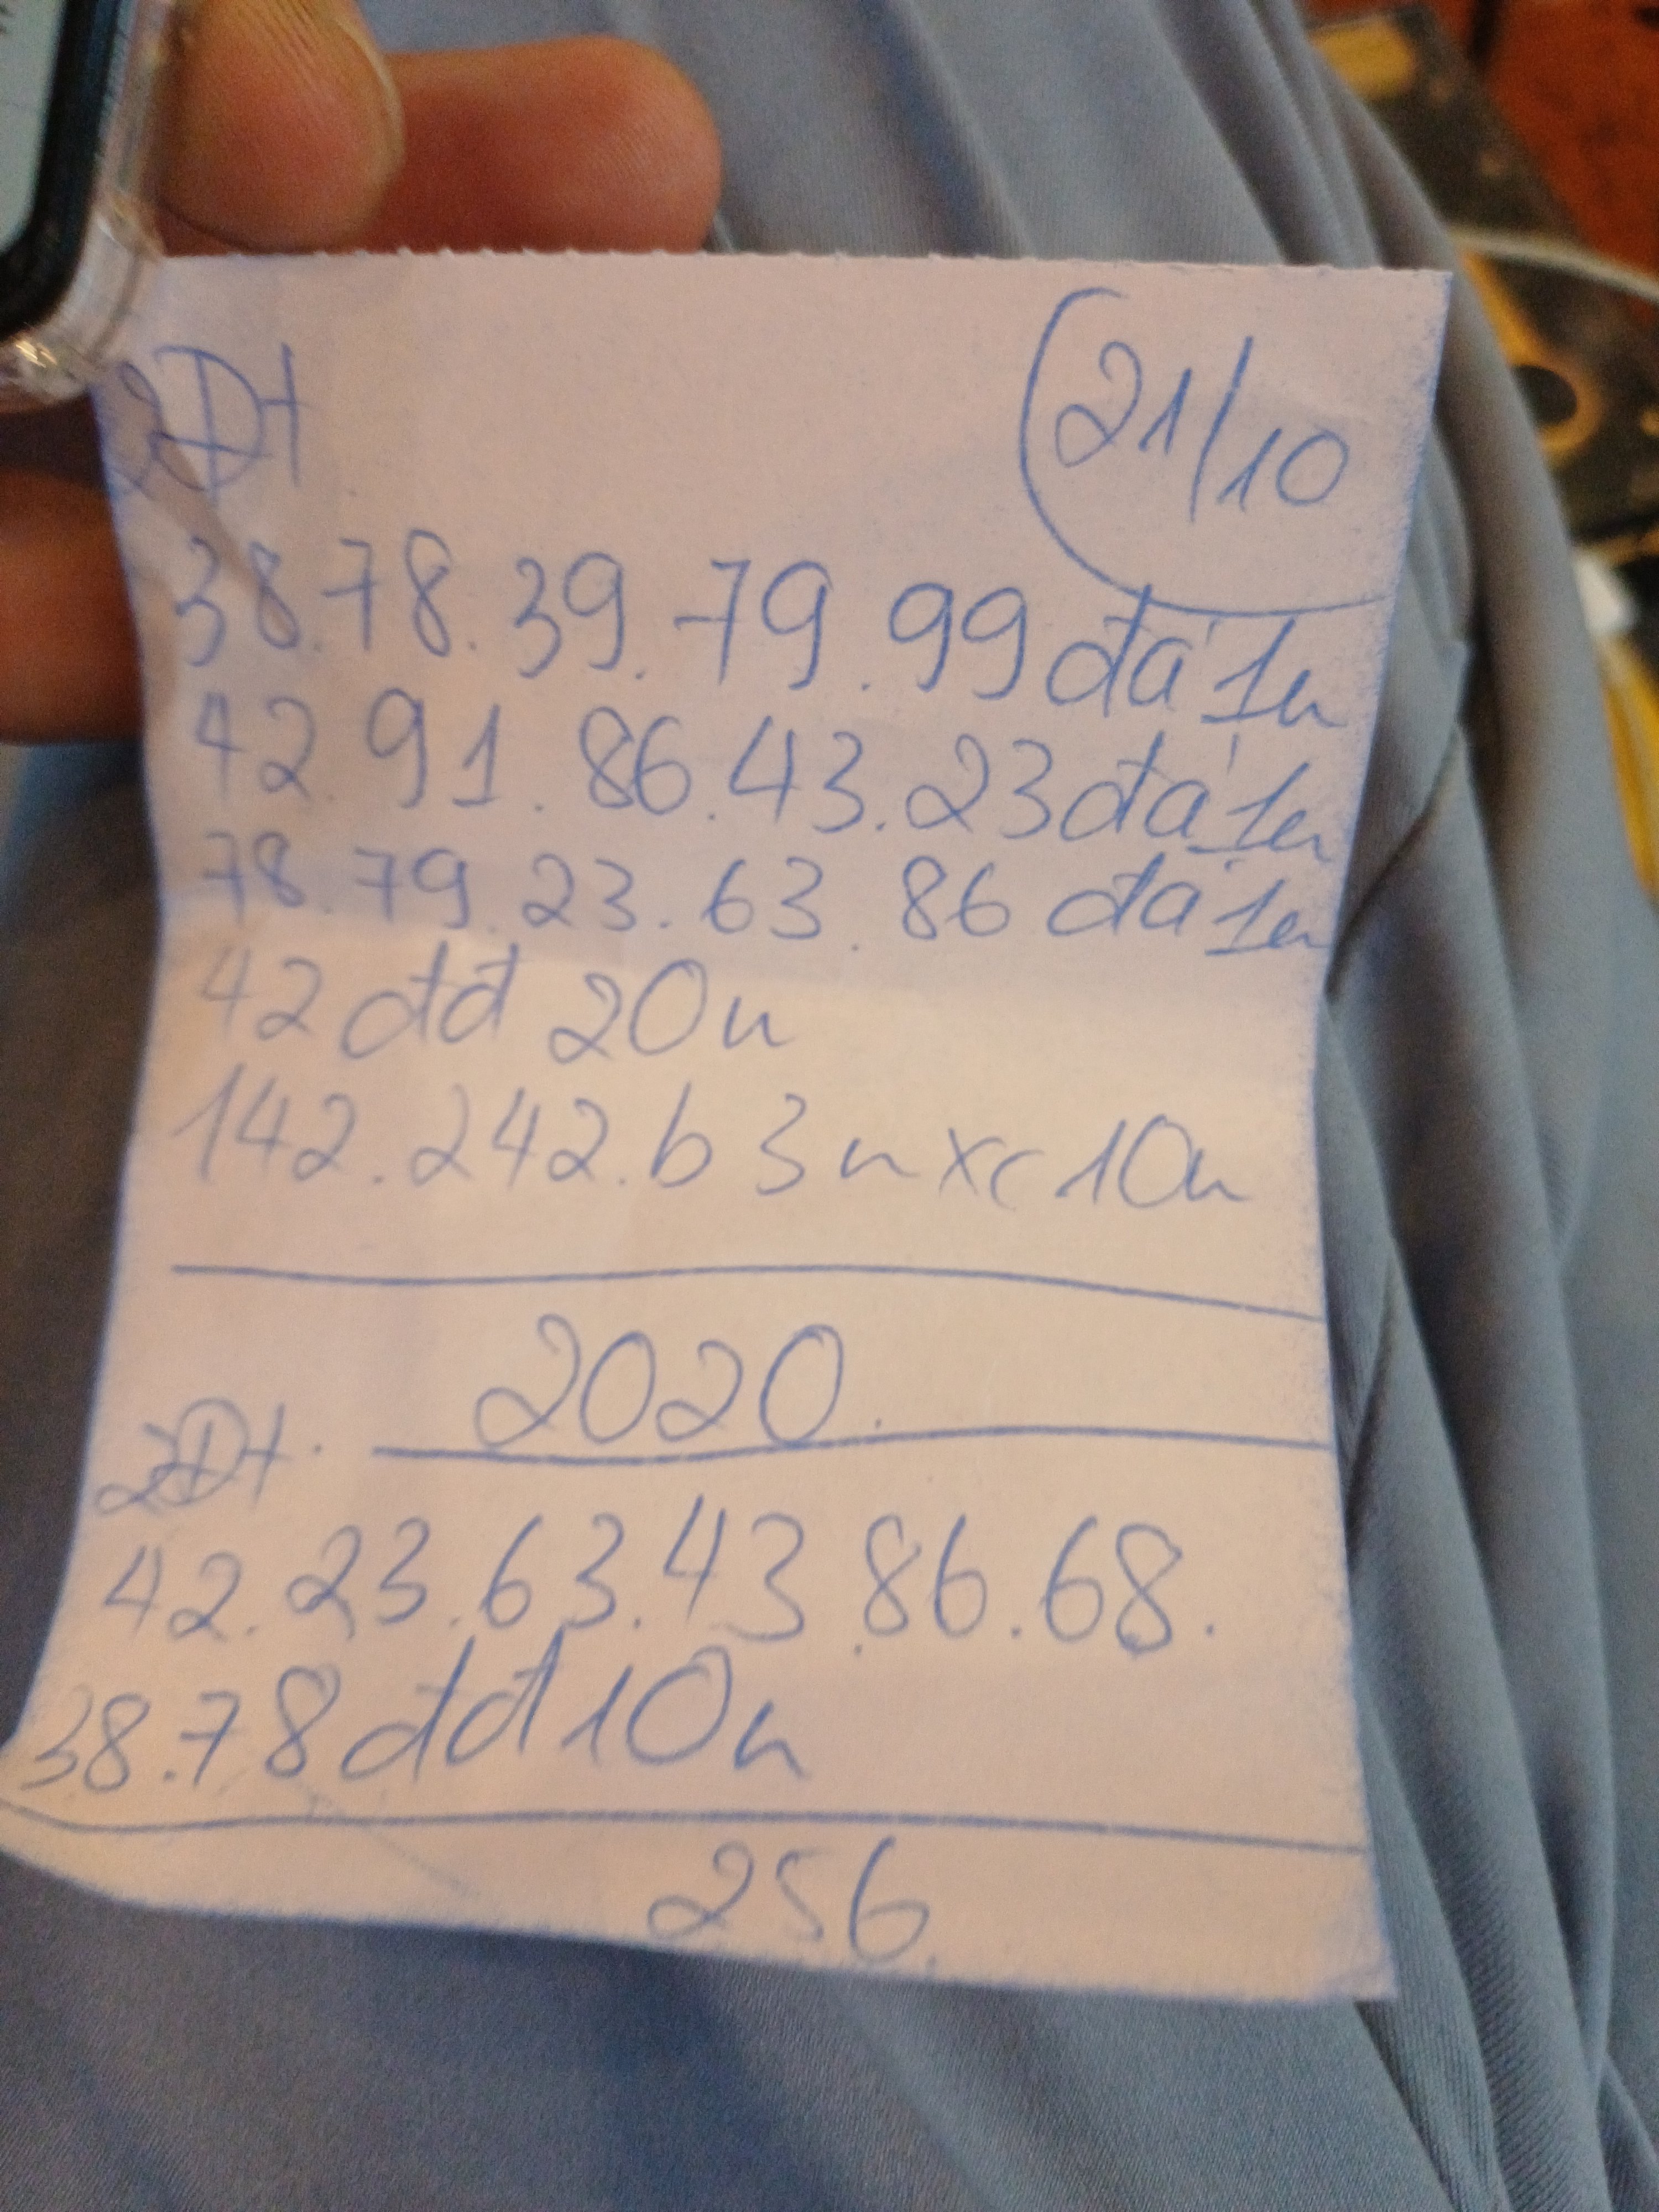 2Dt
21/10
38.78.39.79.99 đá 1n
42.91.86.43.23 đá 1n
78.79.23.63.86 đá 1n
42 dd 20n
142.242.b 3n xc 10n
2020.
2Dt.
42.23.63.43.86.68.
38.78 dd 10n
256.